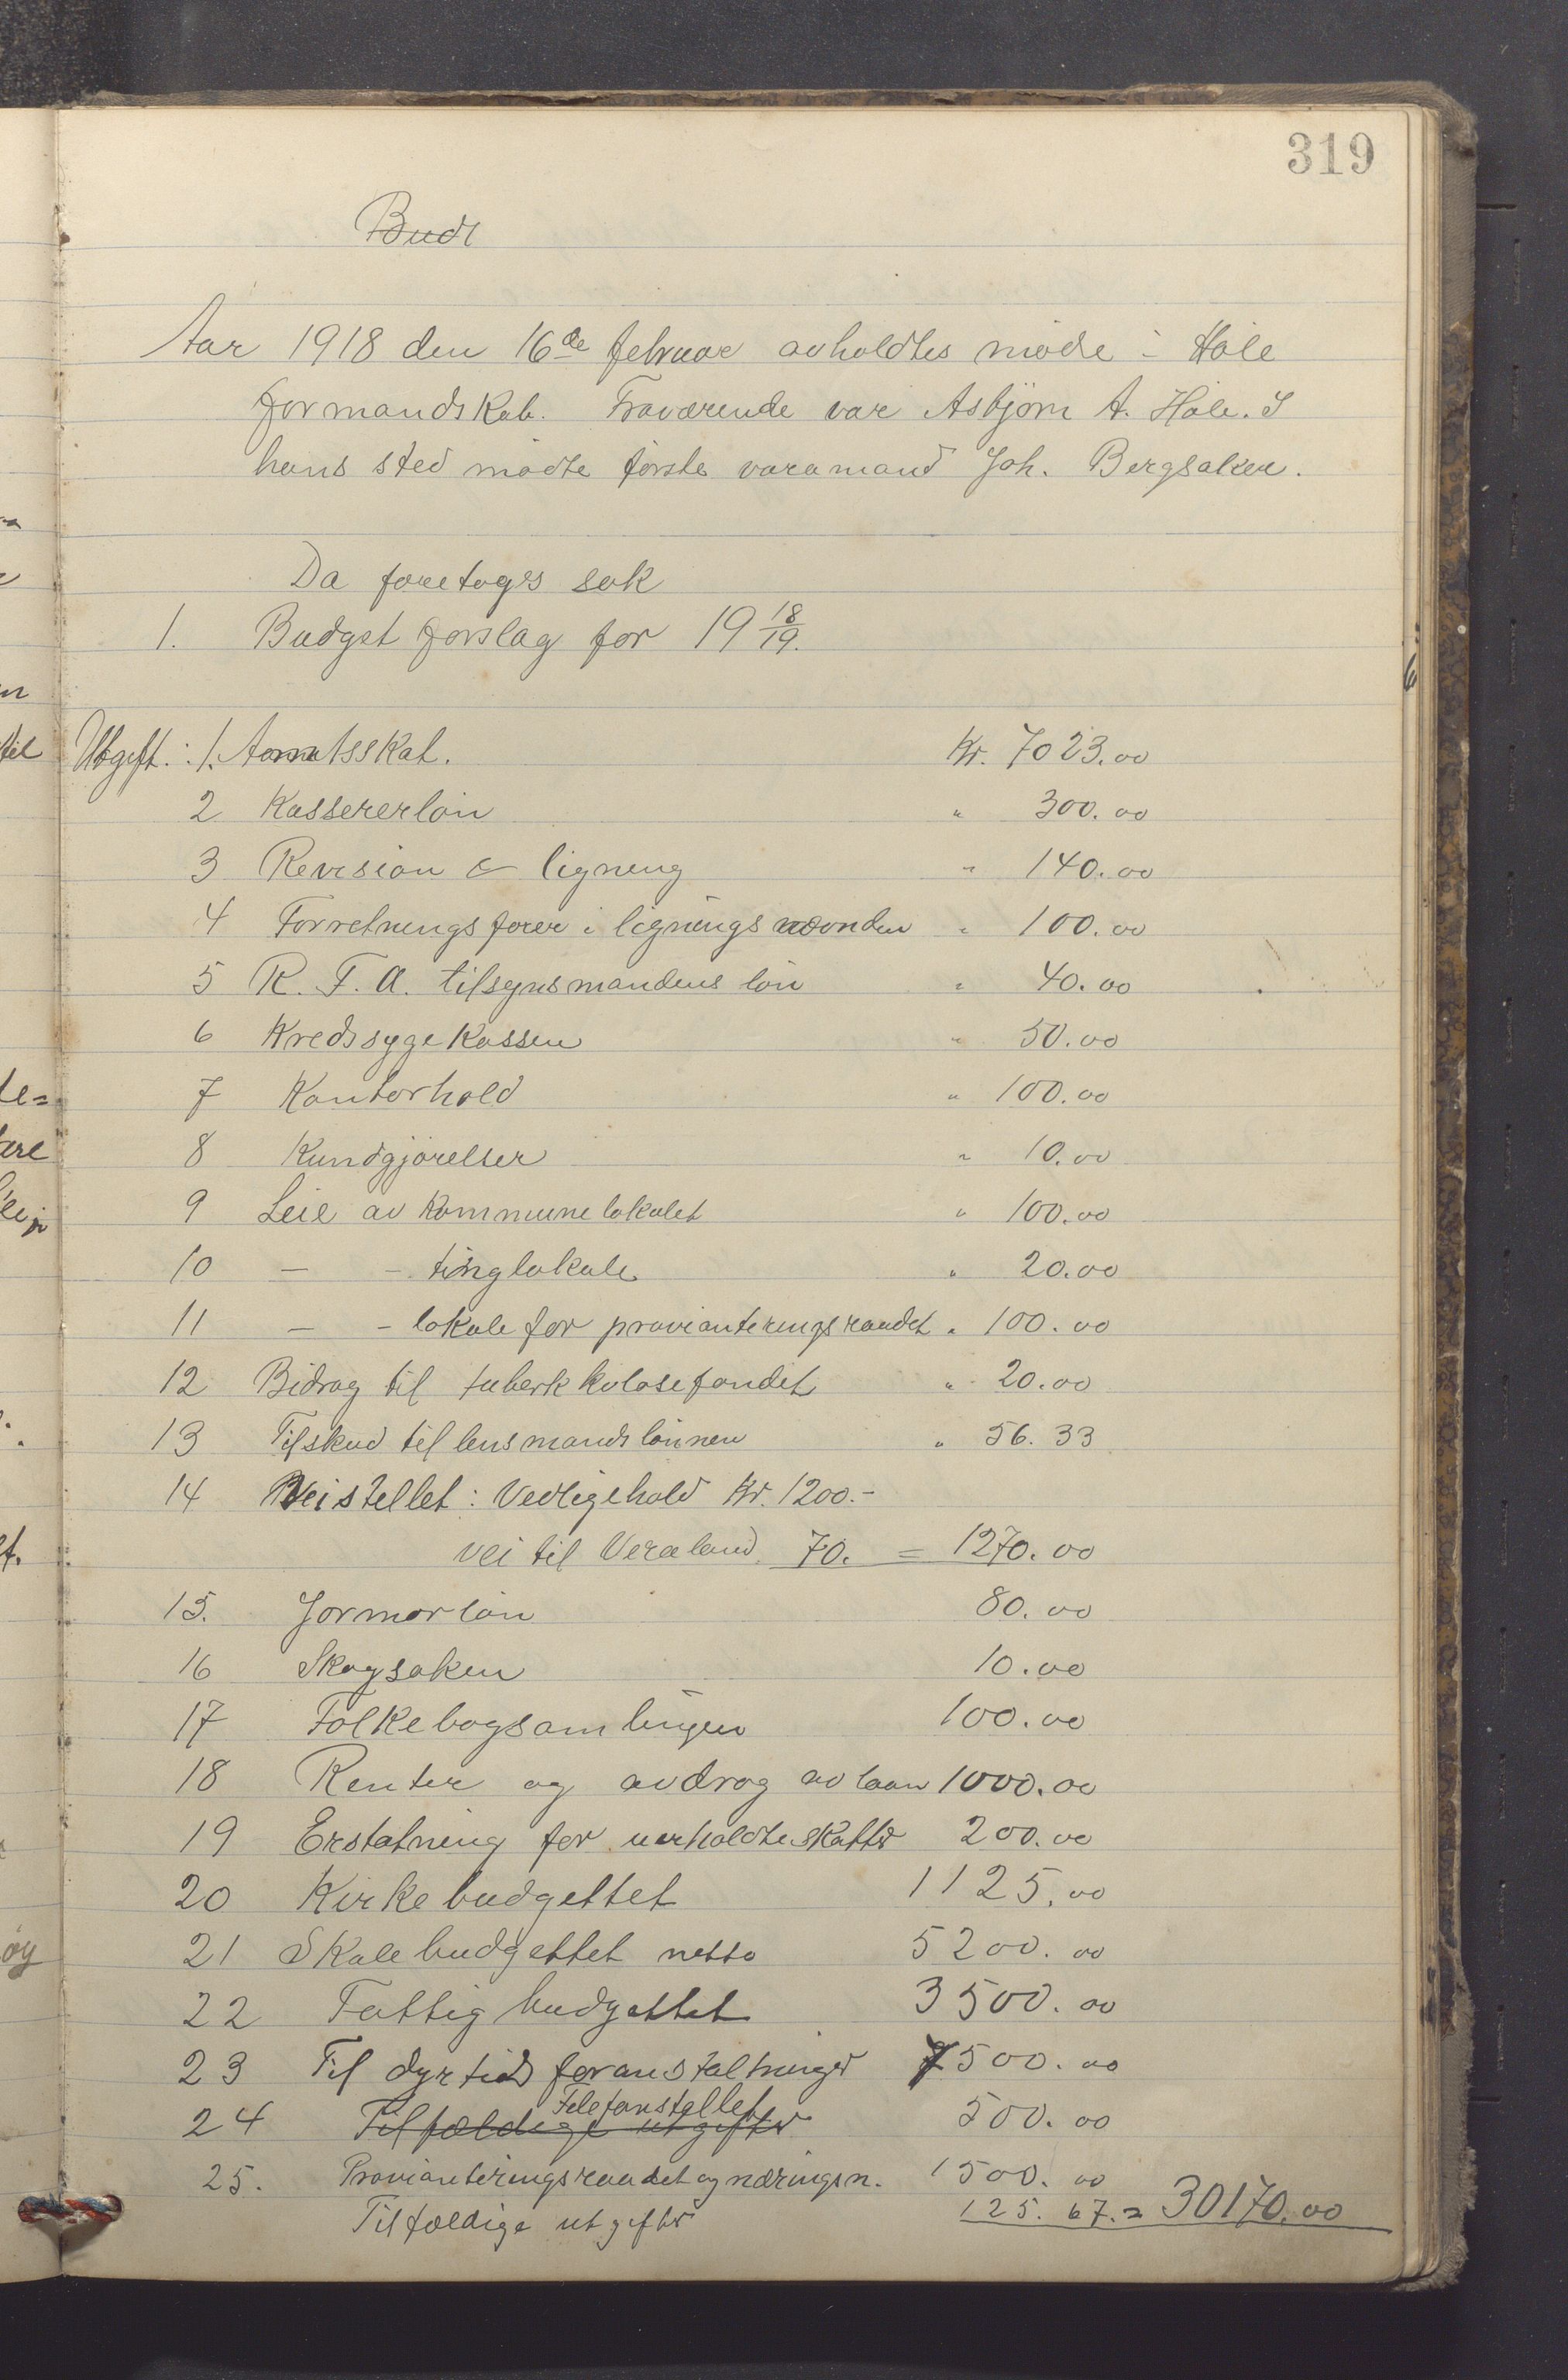 319
Budt
Aar 1918 den 16de februar avholdtes møde i Høle
formandskab. Fraværende var Asbjørn A. Høle. I
hans sted mødte første varamand Joh. Bergsaker.
Da foretoges sak
1. Budget forslag for 19 18/19.
Utgift: 1. Amtsskat. Kr. 7023.00
2 Kassererløn " 300.00
3 Revision & ligning " 140.00
4 Forretningsfører i ligningsnævnden " 100.00
5 R. F. A. tilsynsmandens løn " 40.00
6 Kredssygekassen " 50.00
7 Kontorhold " 100.00
8 Kundgjørelser " 10.00
9 Leie av kommunelokalet " 100.00
10 — - tinglokale " 20.00
11 — - lokale for provianteringsraadet " 100.00
12 Bidrag til tuberkkulosefondet " 20.00
13 Tilskud til lensmandslønnen " 56.33
14 Veistellet: Vedligehold Kr. 1200.-
vei til Veraland 70. = 1270.00
15. Jormorløn 80.00
16 Skogsaken 10.00
17 Folkebogsamlingen 100.00
18 Renter og avdrag av laan 1000.00
19 Erstatning for uerholdte skatter 200.00
20 Kirkebudgettet 1125.00
21 Skolebudgettet netto 5200.00
22 Fattigbudgettet 3500.00
23 Til dyrtidsforanstaltninger 7500.00
Telefonstellet
24 Tilfældige utgifter 500.00
25. Provianteringsraadet og næringsn. 1500.00
Tilfældige utgifter 125.67. = 30170.00